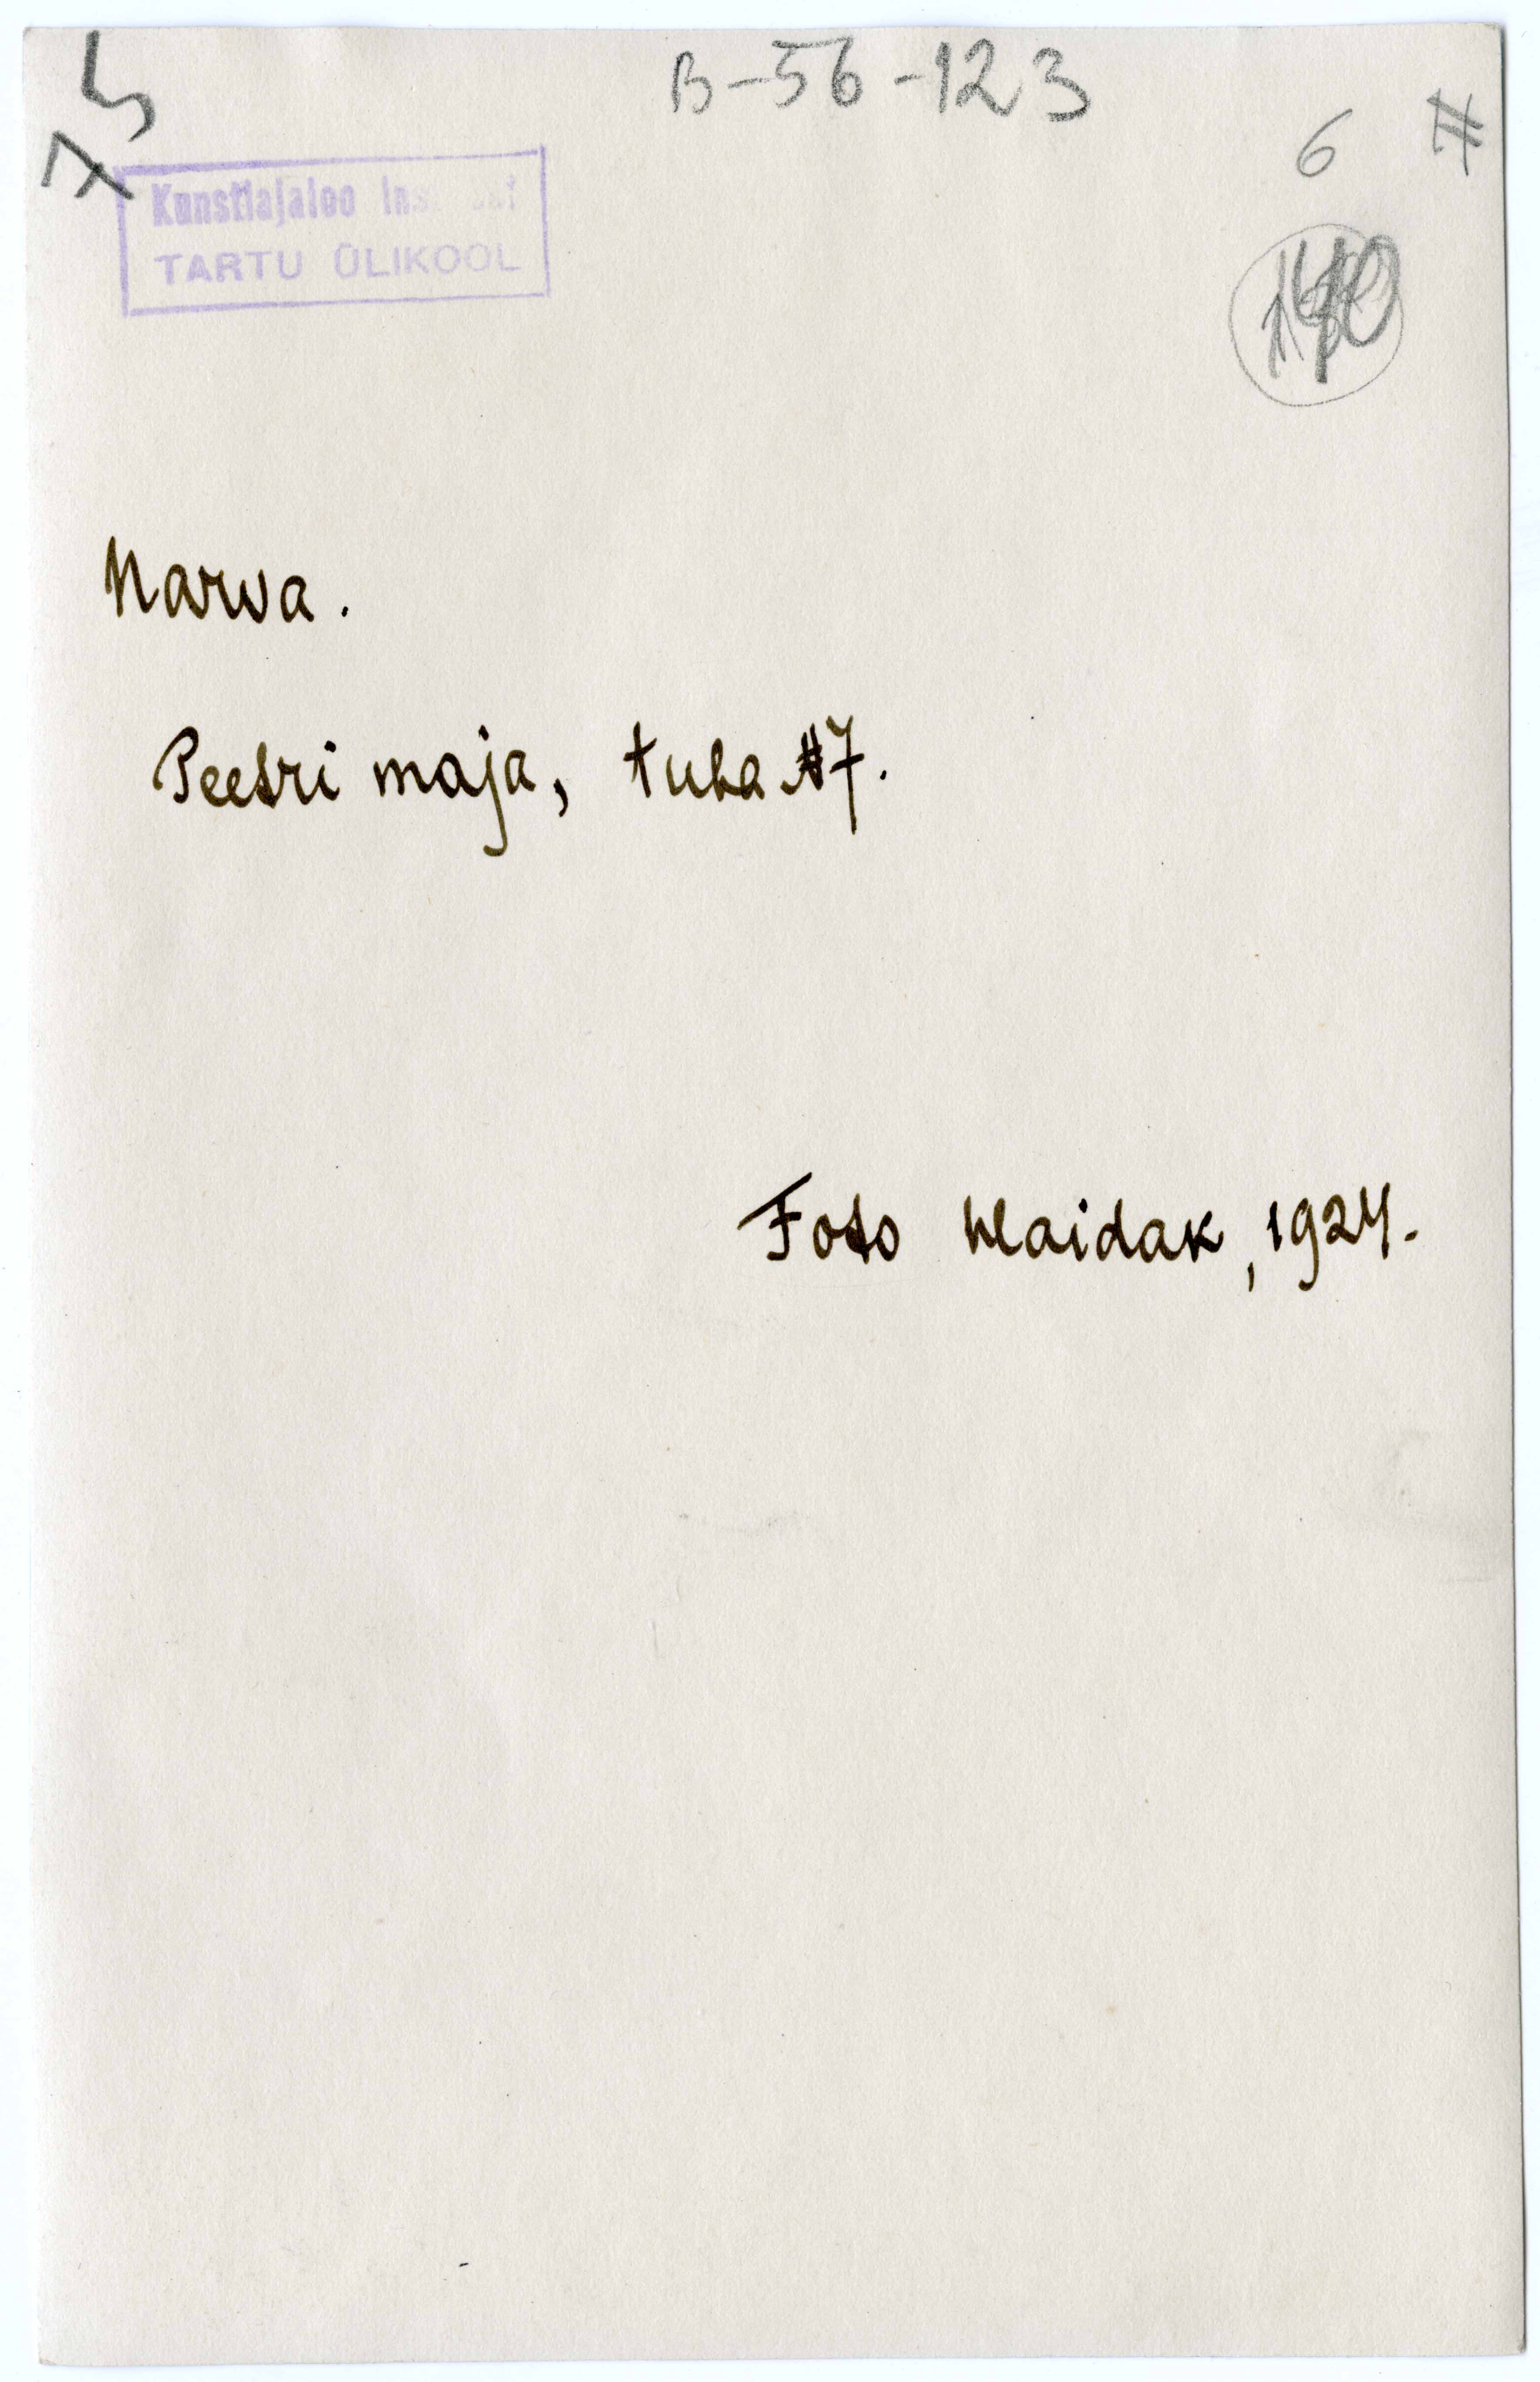 B-56-123
6
Kunstiajaloo
TARTU ÜLIKOOL
Narva.
Peetri maja, tuba №7.
Foto Maidak, 1924.